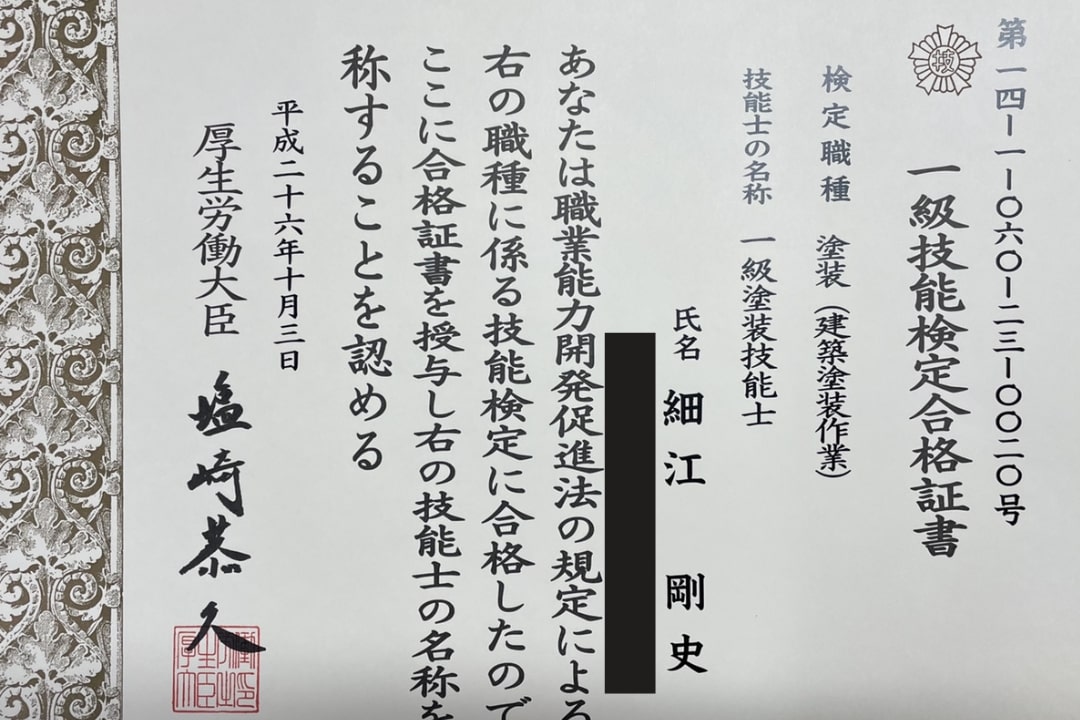 第一四ー一ー〇六〇ー二三ー〇〇二〇号
技
一級技能検定合格証書
検定職種 塗装（建築塗装作業）
技能士の名称 一級塗装技能士
氏名 細江 剛史
あなたは職業能力開発促進法の規定による
右の職種に係る技能検定に合格したので
ここに合格証書を授与し右の技能士の名称を
称することを認める
平成二十六年十月三日
厚生労働大臣 塩崎恭久